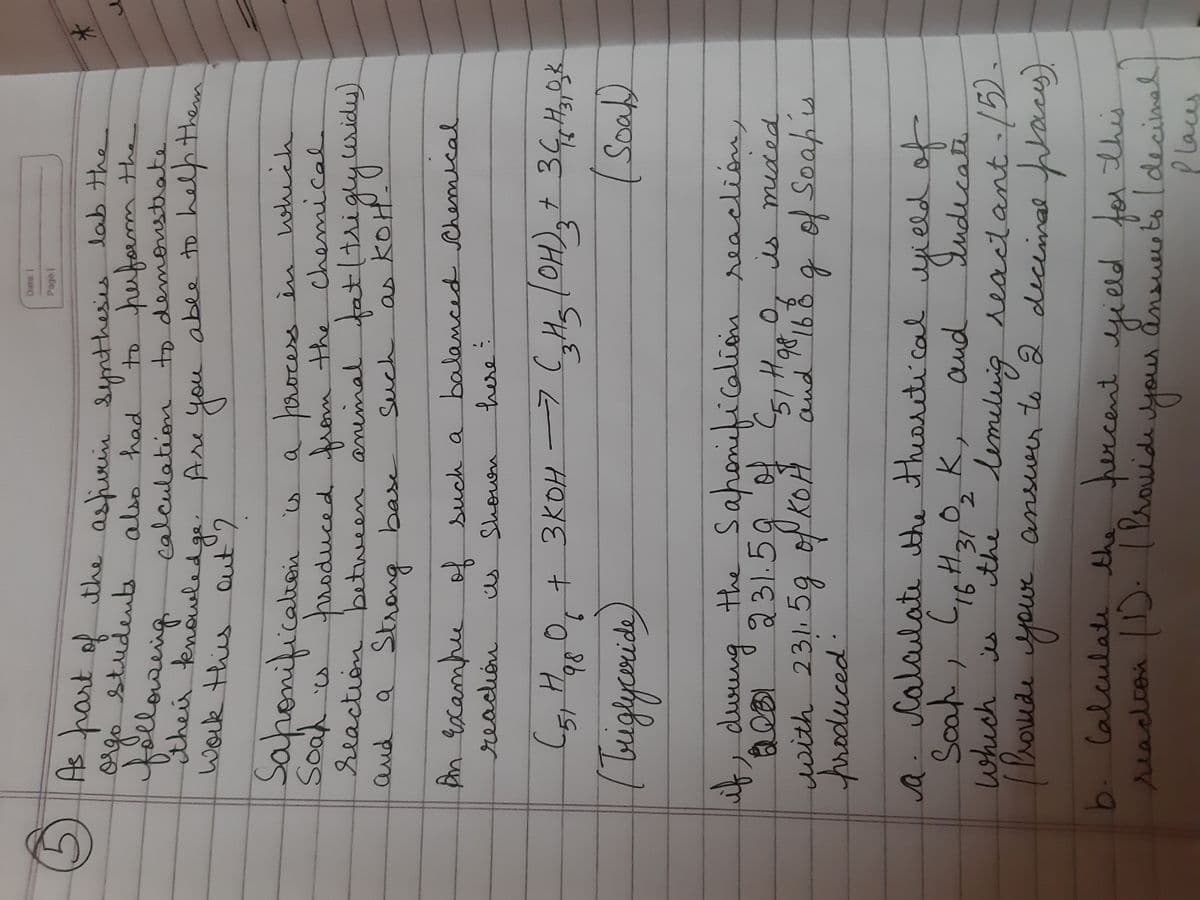 Date:
Page:
*
5 As part of the aspirin synthesis lab the
orgo students also had to perform the
following calculation to demonstrate
their knowledge. Are you able to help them
work this out?
Saponification is a process in which
Soap is produced from the chemical
reaction between animal fat (triglycerides)
and a Strong base such as KOH.
An Example of such a balanced Chemical
reaction is Shown here:
C51H98O6 + 3KOH → C3H5(OH)3 + 3C16H31O2K
(Triglyceride) (Soap)
if, during the Saponification reaction,
231.5g of C51H98O6 is mixed
with 231.5g of KOH and 168 g of Soap is
produced:
a. Calculate the theoretical yield of
Soap, C16H31O2K, and Indicate
which is the limeling reactant. (5).
(Provide your answer to 2 decimal places).
b. Calculate the percent yield for this
reaction (1). (Provide your answer to 1 decimal
Places)